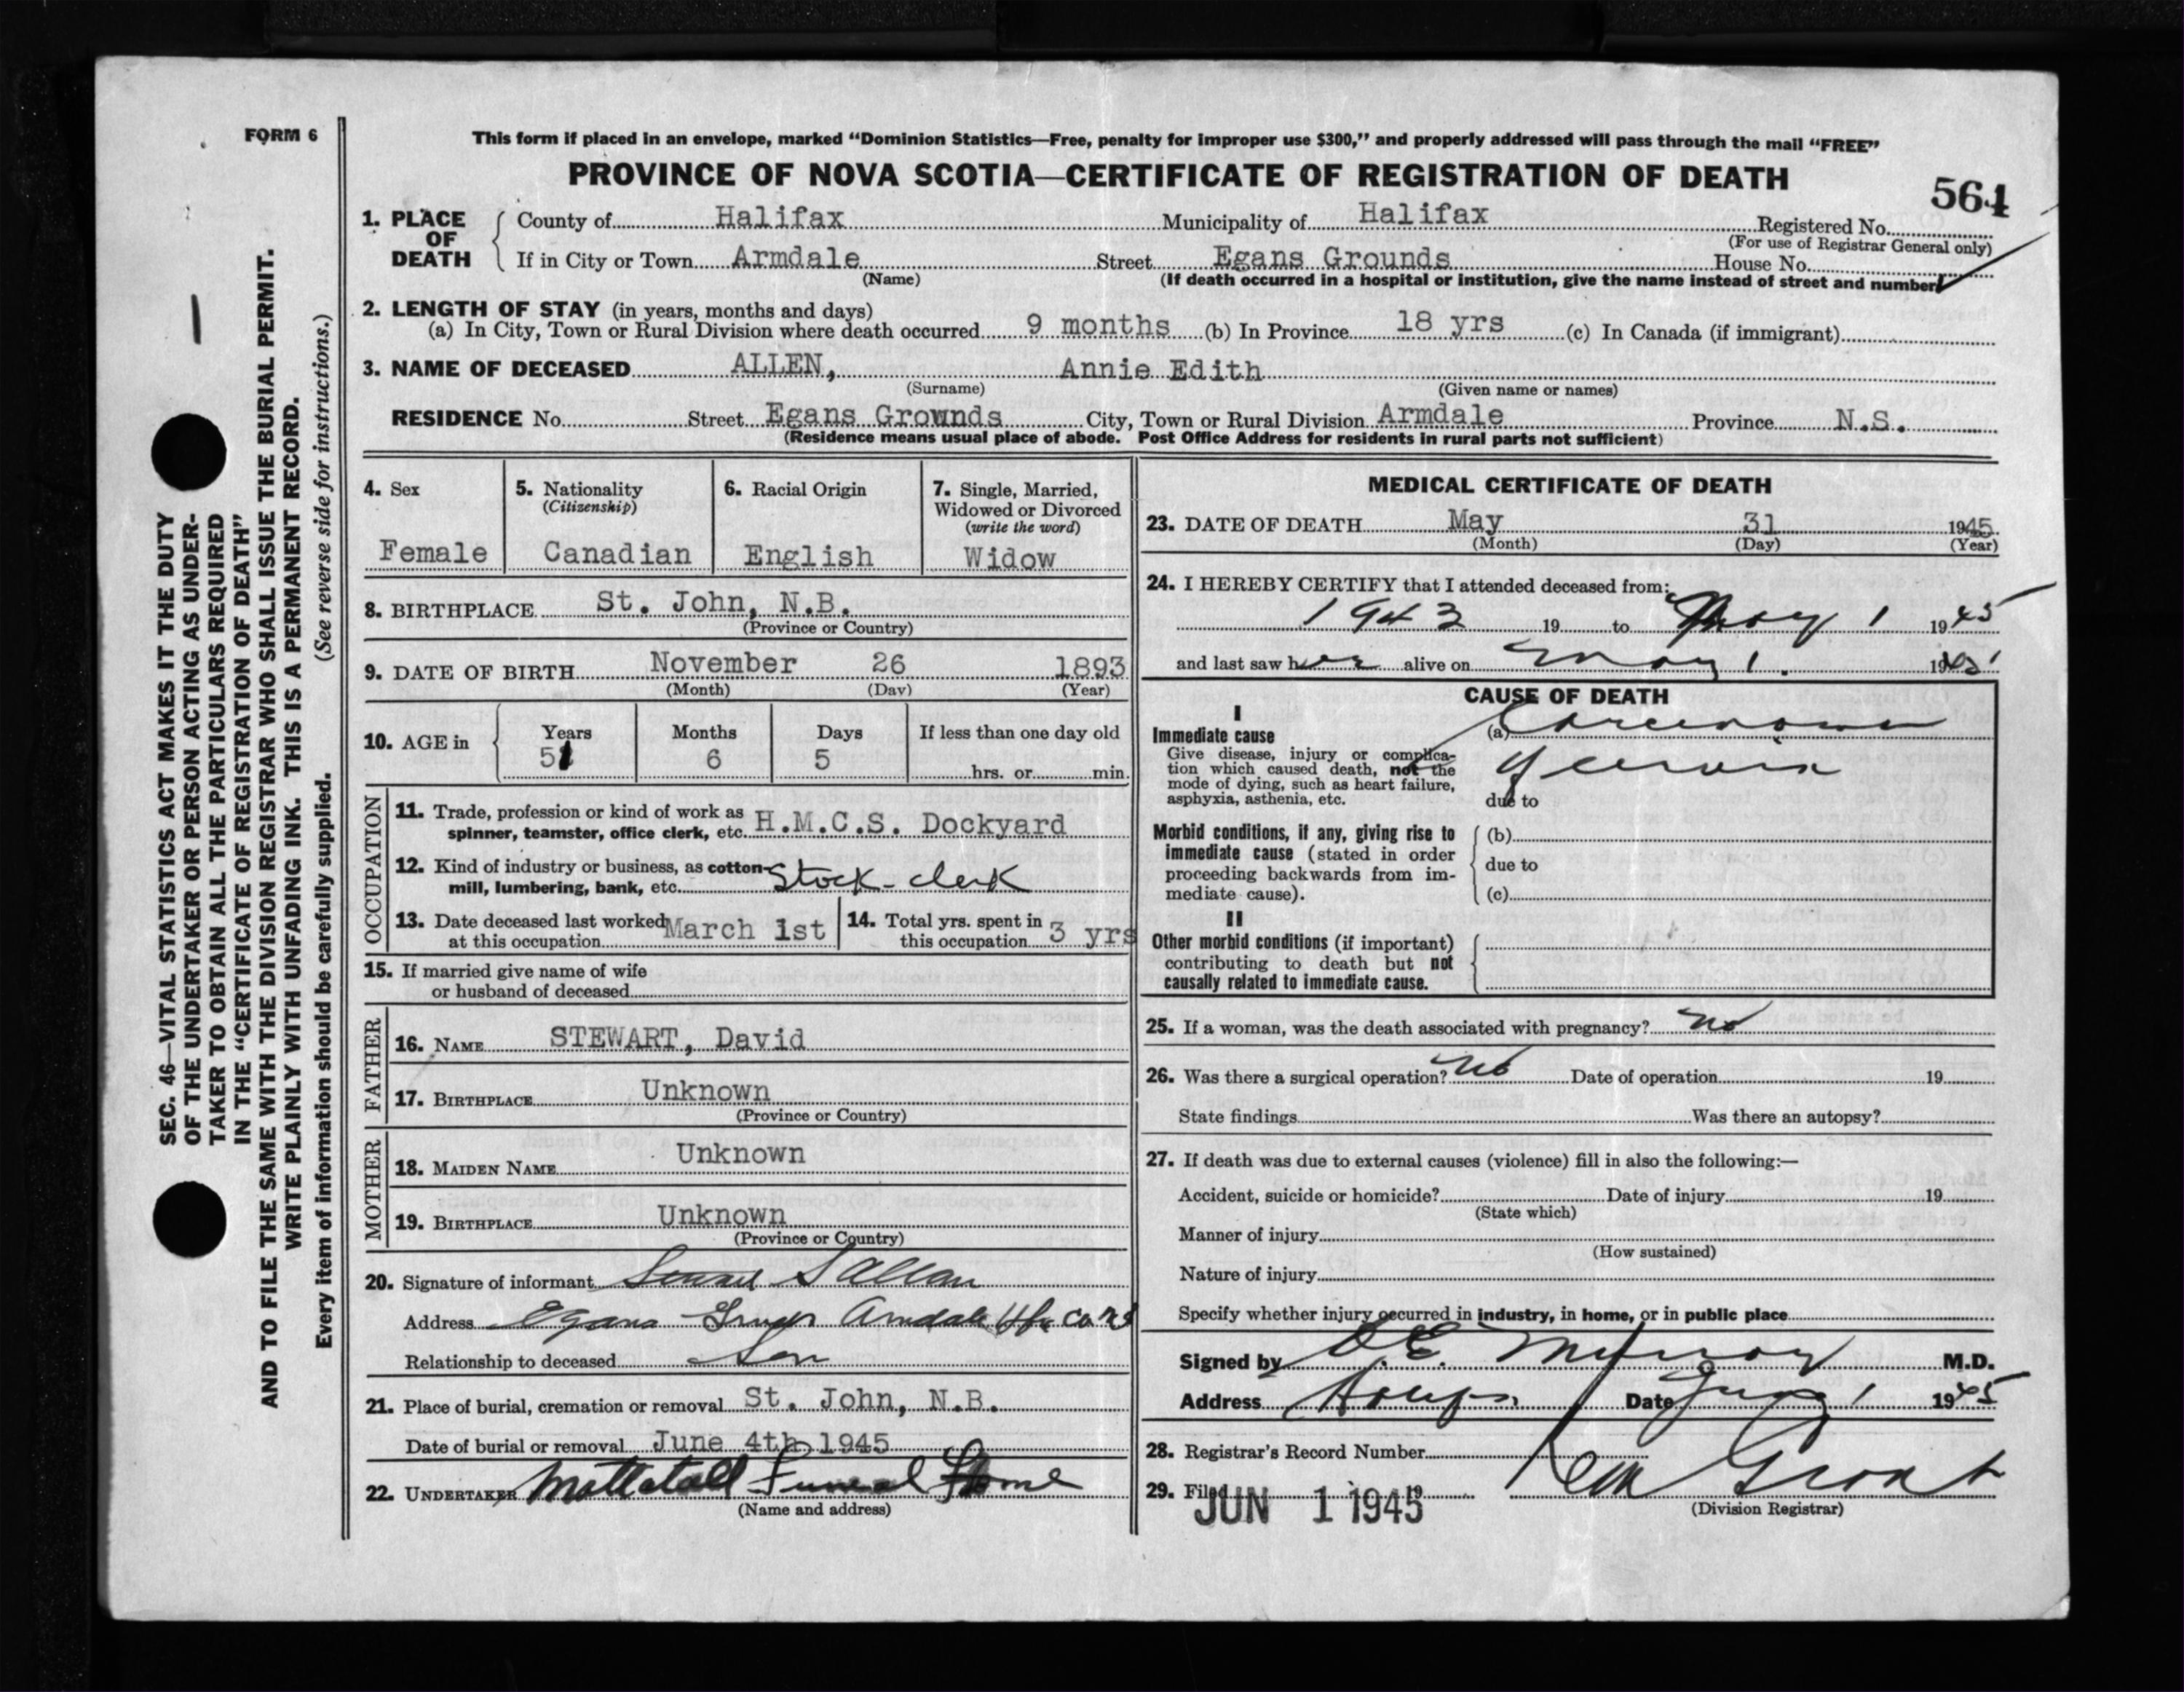 FORM 6
This form if placed in an envelope, marked “Dominion Statistics—Free, penalty for improper use $300,” and properly addressed will pass through the mail “FREE”
PROVINCE OF NOVA SCOTIA—CERTIFICATE OF REGISTRATION OF DEATH
564
1. PLACE OF DEATH County of Halifax Municipality of Halifax Registered No.
(For use of Registrar General only)
If in City or Town Armdale Street Egans Grounds House No.
(Name) (If death occurred in a hospital or institution, give the name instead of street and number)
2. LENGTH OF STAY (in years, months and days)
(a) In City, Town or Rural Division where death occurred 9 months (b) In Province 18 yrs (c) In Canada (if immigrant)
3. NAME OF DECEASED ALLEN, Annie Edith
(Surname) (Given name or names)
RESIDENCE No. Street Egans Grounds City, Town or Rural Division Armdale Province N.S.
(Residence means usual place of abode. Post Office Address for residents in rural parts not sufficient)
4. Sex
Female
5. Nationality
(Citizenship)
Canadian
6. Racial Origin
English
7. Single, Married,
Widowed or Divorced
(write the word)
Widow
8. BIRTHPLACE St. John, N.B.
(Province or Country)
9. DATE OF BIRTH November 26 1893
(Month) (Day) (Year)
10. AGE in Years Months Days If less than one day old
51 6 5 hrs. or min.
OCCUPATION
11. Trade, profession or kind of work as
spinner, teamster, office clerk, etc. H.M.C.S. Dockyard
12. Kind of industry or business, as cotton-
mill, lumbering, bank, etc. Stock-clerk
13. Date deceased last worked
at this occupation March 1st
14. Total yrs. spent in
this occupation 3 yrs
15. If married give name of wife
or husband of deceased
FATHER
16. NAME STEWART, David
17. BIRTHPLACE Unknown
(Province or Country)
MOTHER
18. MAIDEN NAME Unknown
19. BIRTHPLACE Unknown
(Province or Country)
20. Signature of informant S Allan
Address Egans Armdale Hfx Co NS
Relationship to deceased Son
21. Place of burial, cremation or removal St. John, N.B.
Date of burial or removal June 4th 1945
22. UNDERTAKER Mattatall Funeral Home
(Name and address)
MEDICAL CERTIFICATE OF DEATH
23. DATE OF DEATH May 31 1945
(Month) (Day) (Year)
24. I HEREBY CERTIFY that I attended deceased from:
1943 19 to May 1 1945
and last saw her alive on May 1. 1945
CAUSE OF DEATH
I
Immediate cause
Give disease, injury or complica-
tion which caused death, not the
mode of dying, such as heart failure,
asphyxia, asthenia, etc.
(a) Carcinoma
of cervix
due to
Morbid conditions, if any, giving rise to
immediate cause (stated in order
proceeding backwards from im-
mediate cause).
(b)
due to
(c)
II
Other morbid conditions (if important)
contributing to death but not
causally related to immediate cause.
25. If a woman, was the death associated with pregnancy? No
26. Was there a surgical operation? No Date of operation 19
State findings Was there an autopsy?
27. If death was due to external causes (violence) fill in also the following:—
Accident, suicide or homicide? Date of injury 19
(State which)
Manner of injury
(How sustained)
Nature of injury
Specify whether injury occurred in industry, in home, or in public place
Signed by M.D.
Address Date June 1 1945
28. Registrar's Record Number
29. Filed JUN 1 1945 19
(Division Registrar)
SEC. 46—VITAL STATISTICS ACT MAKES IT THE DUTY
OF THE UNDERTAKER OR PERSON ACTING AS UNDER-
TAKER TO OBTAIN ALL THE PARTICULARS REQUIRED
IN THE “CERTIFICATE OF REGISTRATION OF DEATH”
AND TO FILE THE SAME WITH THE DIVISION REGISTRAR WHO SHALL ISSUE THE BURIAL PERMIT.
WRITE PLAINLY WITH UNFADING INK. THIS IS A PERMANENT RECORD.
Every item of information should be carefully supplied. (See reverse side for instructions.)